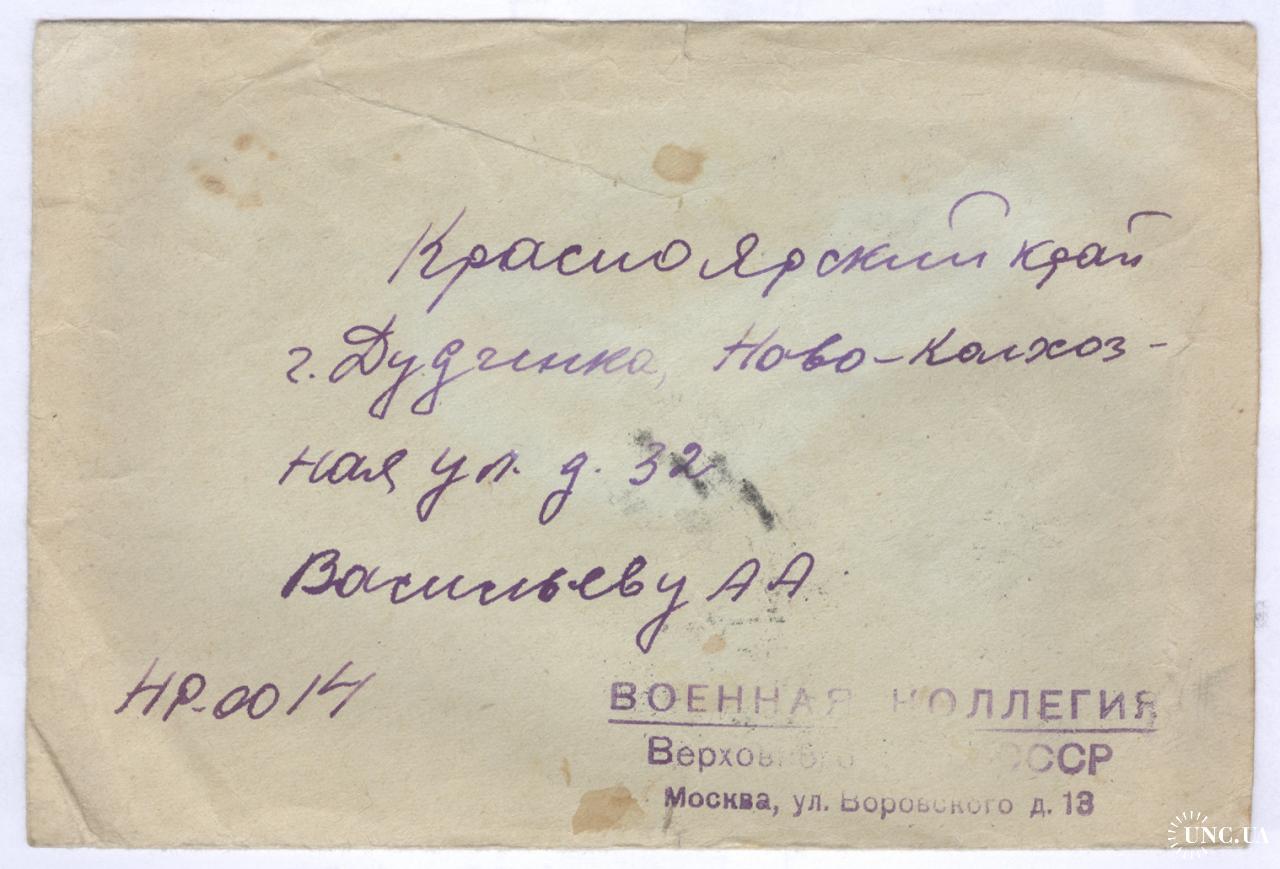 Красноярский край
г. Дудинка, Ново-Колхоз-
ная ул. д. 32
Васильеву АА.
НР-0014
ВОЕННАЯ КОЛЛЕГИЯ
Верховного СССР
Москва, ул. Воровского д. 13
UNC.UA